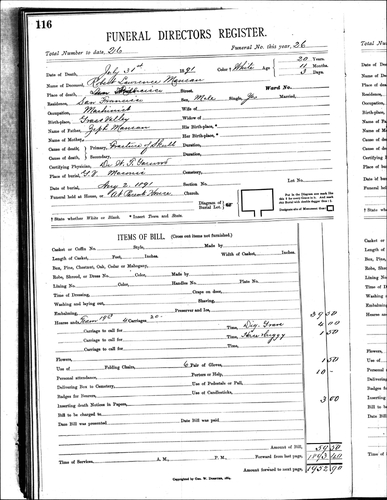 116
FUNERAL DIRECTORS REGISTER.
Total Number to date, 26 Funeral No. this year, 26
Date of Death, July 31st 1891 Color * White Age 20 Years
11 Months
3 Days
Name of Deceased, Robert Lawrence Manson
Place of death, San Francisco Street Ward No.
Residence, San Francisco Sex, Male Single, Yes Married,
Occupation, Machinist Wife of
Birth-place, Grass Valley Widow of
Name of Father, Jeph Manson His Birth-place, *
Name of Mother, Her Birth-place, *
Cause of death, Primary, Fracture of Skull Duration,
Cause of death, Secondary, Duration,
Certifying Physician, Dr.
Place of burial, G.V. Masonic Cemetery,
Date of burial, Aug 2 1891 Section No. Lot No.
Funeral held at House, or Church.
Diagram of Burial Lot.
† State whether White or Black. * Insert Town and State.
ITEMS OF BILL. (Cross out items not furnished.)
Casket or Coffin No. Style, Made by
Length of Casket, Feet, Inches. Width of Casket, Inches.
Box, Pine, Chestnut, Oak, Cedar or Mahogany,
Robe, Shroud, or Dress No. Color, Made by
Lining No. Color, Handles No. Plate No.
Time of Dressing, Crape on door,
Washing and laying out, Shaving,
Embalming, Preserver and Ice,
Hearse and 4 Carriages 20- 39 50
Carriage to call for Time, Dig Grave 4 00
Carriage to call for Time, Hire buggy 1 50
Carriage to call for Time,
Flowers,
Use of Folding Chairs, 6 Pair of Gloves, 1 50
Personal attendance, Porters or Help, 10 -
Delivering Box to Cemetery, Use of Pedestals or Pall,
Badges for Bearers, Use of Candlesticks,
Inserting death Notices in Papers, 3 00
Bill to be charged to
Date Bill was presented Date Bill was paid
Amount of Bill, 59 50
Time of Services A. M., P. M., Forward from last page,
Amount forward to next page, 1952 90